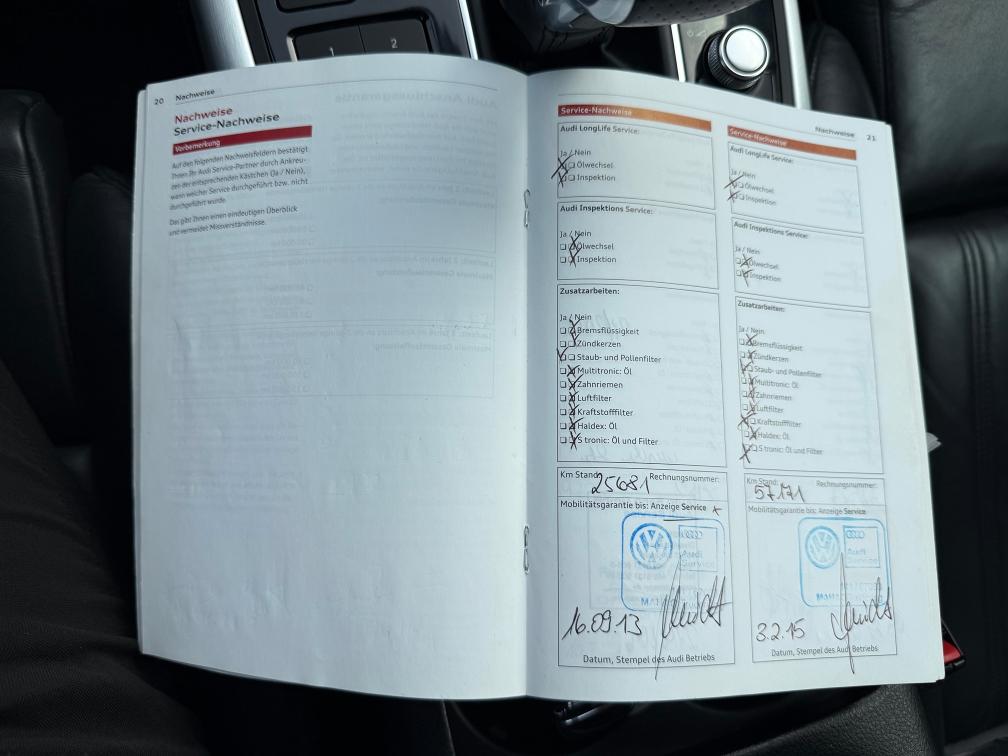 1
2
20 Nachweise
Nachweise
Service-Nachweise
Vorbemerkung
Auf den folgenden Nachweisfeldern bestätigt
Ihnen Ihr Audi Service-Partner durch Ankreu-
zen der entsprechenden Kästchen (Ja / Nein),
wann welcher Service durchgeführt bzw. nicht
durchgeführt wurde.
Das gibt Ihnen einen eindeutigen Überblick
und vermeidet Missverständnisse.
Service-Nachweise
Audi LongLife Service:
Ja / Nein
Ölwechsel
Inspektion
Audi Inspektions Service:
Ja / Nein
Ölwechsel
Inspektion
Zusatzarbeiten:
Ja / Nein
Bremsflüssigkeit
Zündkerzen
Staub- und Pollenfilter
Multitronic: Öl
Zahnriemen
Luftfilter
Kraftstofffilter
Haldex: Öl
S tronic: Öl und Filter
Km Stand: 25681 Rechnungsnummer:
Mobilitätsgarantie bis: Anzeige Service
Audi
Service
16.09.13
Datum, Stempel des Audi Betriebs
Nachweise 21
Service-Nachweise
Audi LongLife Service:
Ja / Nein
Ölwechsel
Inspektion
Audi Inspektions Service:
Ja / Nein
Ölwechsel
Inspektion
Zusatzarbeiten:
Ja / Nein
Bremsflüssigkeit
Zündkerzen
Staub- und Pollenfilter
Multitronic: Öl
Zahnriemen
Luftfilter
Kraftstofffilter
Haldex: Öl
S tronic: Öl und Filter
Km Stand: 57171 Rechnungsnummer:
Mobilitätsgarantie bis: Anzeige Service
Audi
Service
3.2.15
Datum, Stempel des Audi Betriebs